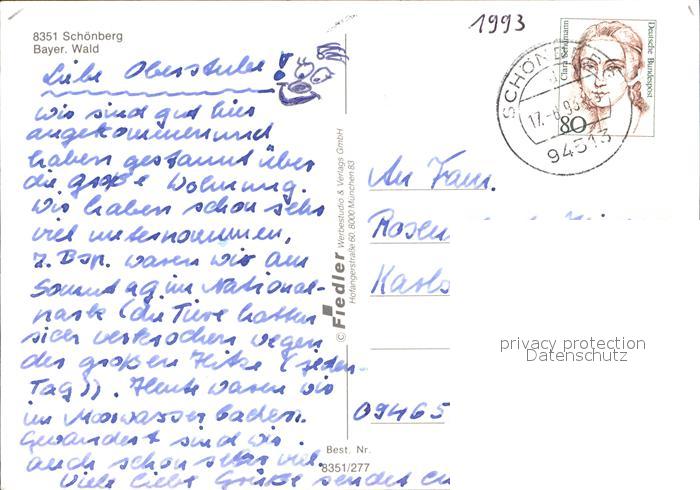 8351 Schönberg
Bayer. Wald
1993
Clara Schumann
Deutsche Bundespost
80
17.-6.93
94513
Liebe
wir sind gut hier
angekommen und
haben gestaunt über
die große Wohnung.
Wir haben schon sehr
viel unternommen,
z. Bsp. waren wir am
Sonntag im National-
park (die Tiere hatten
sich verkrochen wegen
der großen Hitze (jeden
Tag)). Heute waren wir
im Moorwasser baden.
Gewandert sind wir
auch schon sehr viel.
Viele liebe Grüße sendet
An Fam.
Rosen
09465
© Fiedler Werbestudio & Verlags GmbH
Hofangerstraße 60, 8000 München 83
Best. Nr.
8351/277
privacy protection
Datenschutz